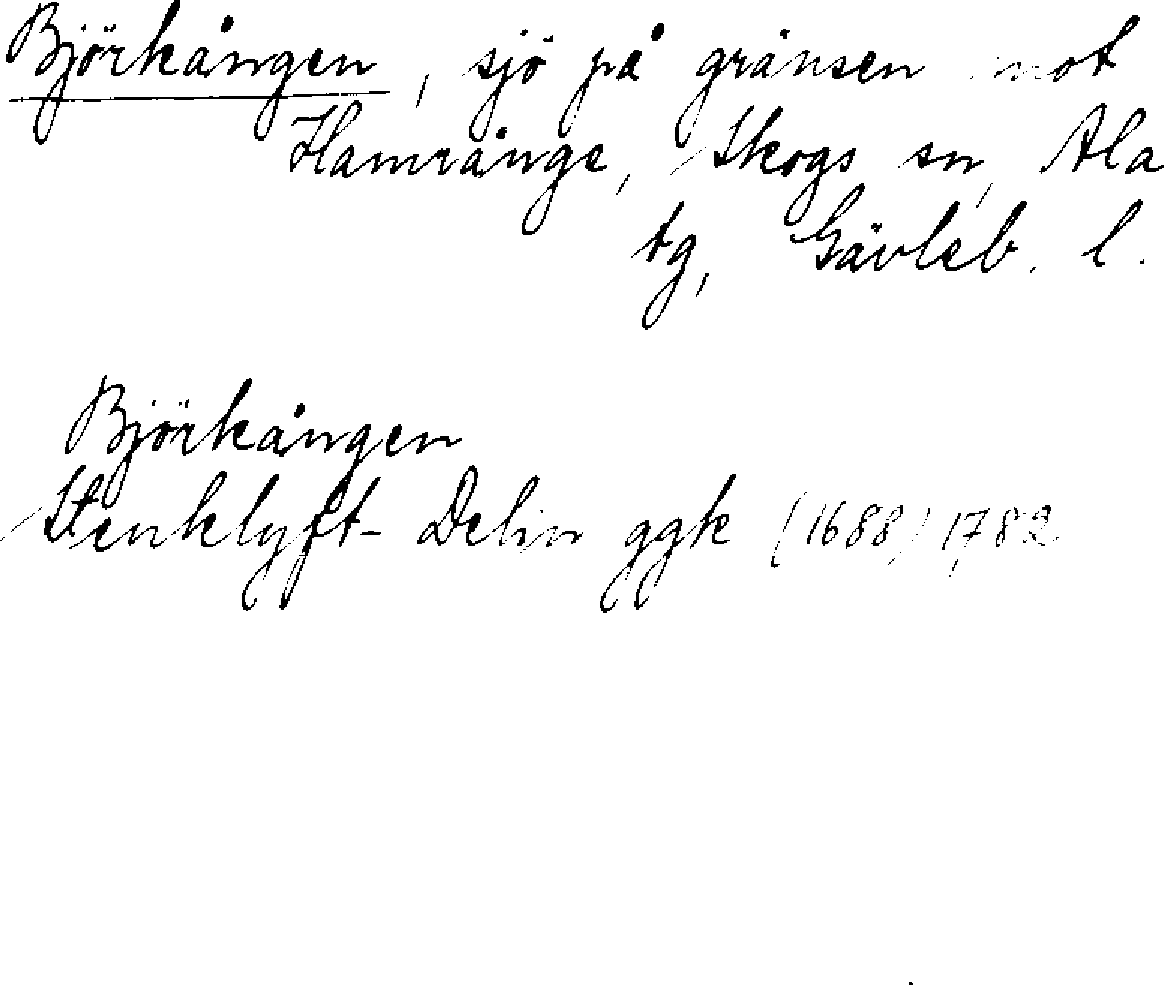 Björkången, sjö på gränsen mot
Hamrånge, Skogs sn, Ala
tg, Gävleb. l.
Björkången
Stenklyft- Delin ggk (1688) 1782